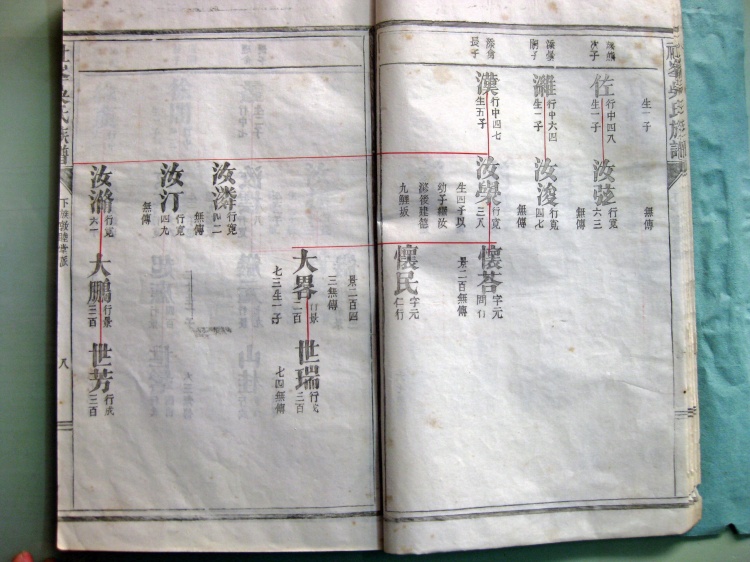 祁峯吳氏族譜
生一子
無傳
次子
佐
行中四八
生一子
汝弦
行寬
六三
無傳
嗣子
濰
行中六四
生一子
汝浚
行寬
四七
無傳
長子
漢
行中四七
生五子
汝㸁
行寬
三八
生四子以
幼子繼汝
後建德
九鯉坂
懷荅
字元
同行
景二百無傳
懷民
字元
仁行
景二百四
三無傳
大畧
行景
二百
七三生一子
世瑞
行成
三百
七四無傳
汝潾
行寬
四二
無傳
汝汀
行寬
四九
無傳
汝瀚
行寬
六一
大鵬
行景
三百
世芳
行成
三百
吳氏族譜
八